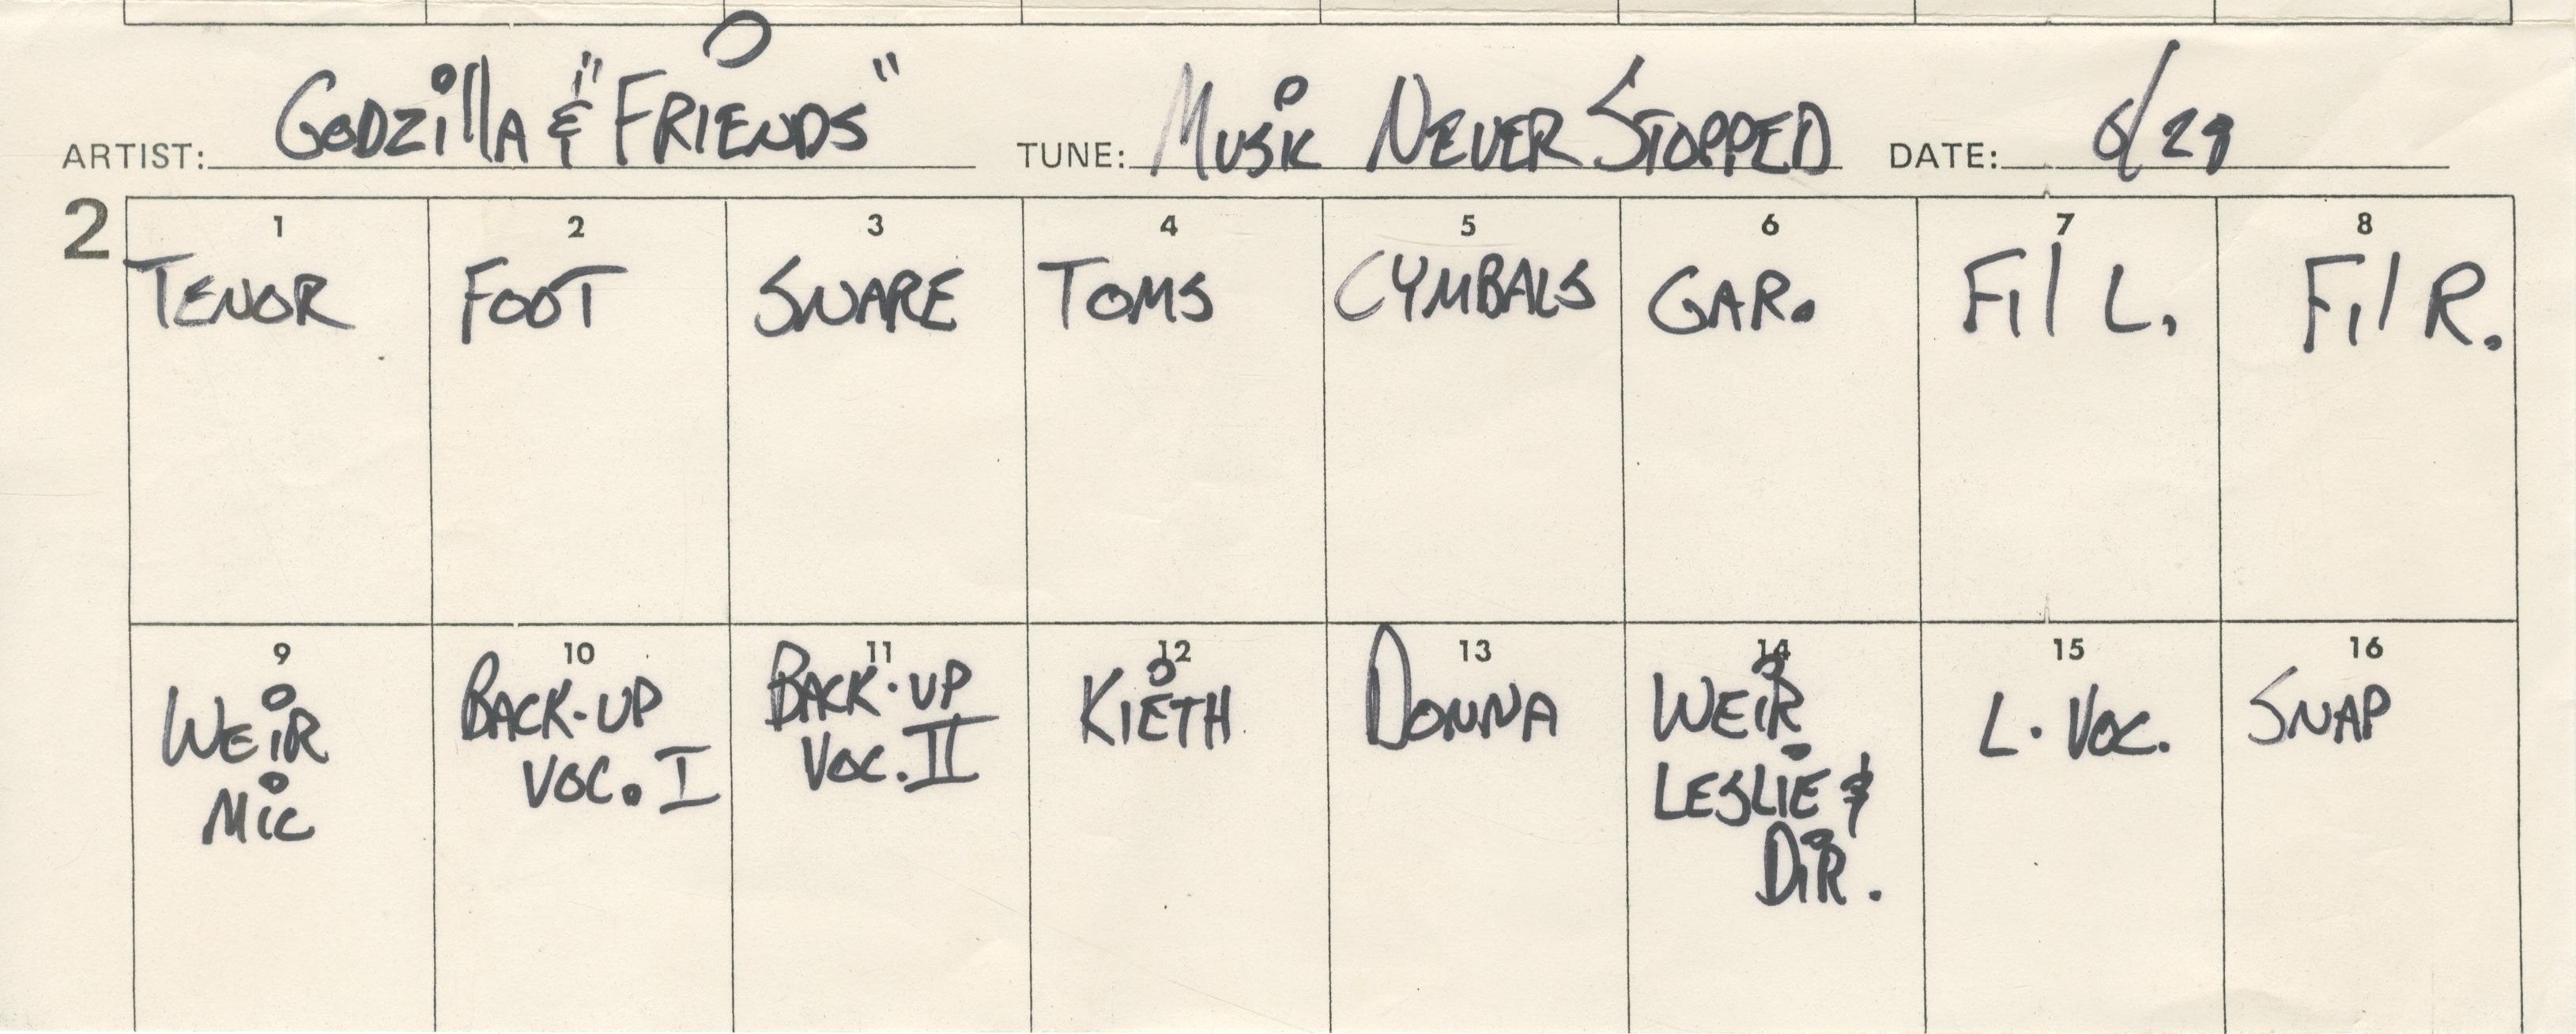 ARTIST: GODZILLA & "FRIENDS" TUNE: MUSIC NEVER STOPPED DATE: 6/29
2
1 2 3 4 5 6 7 8
TENOR FOOT SNARE TOMS CYMBALS GAR. Fil L. Fil R.
9 10 11 12 13 14 15 16
WEIR MIC
BACK-UP VOC. I
BACK-UP VOC. II
KIETH
DONNA
WEIR LESLIE & DIR.
L. VOC.
SNAP